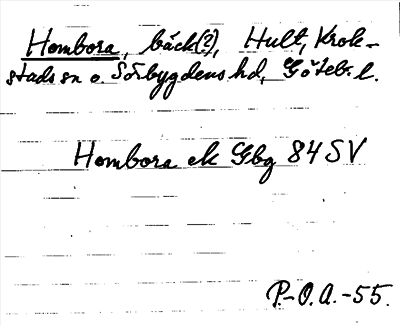 Hombora, bäck(?), Hult, Krok-
stads sn o. Sörbygdens hd, Göteb. l.
Hombora ek Gbg 84 SV
P.-O.A.-55.